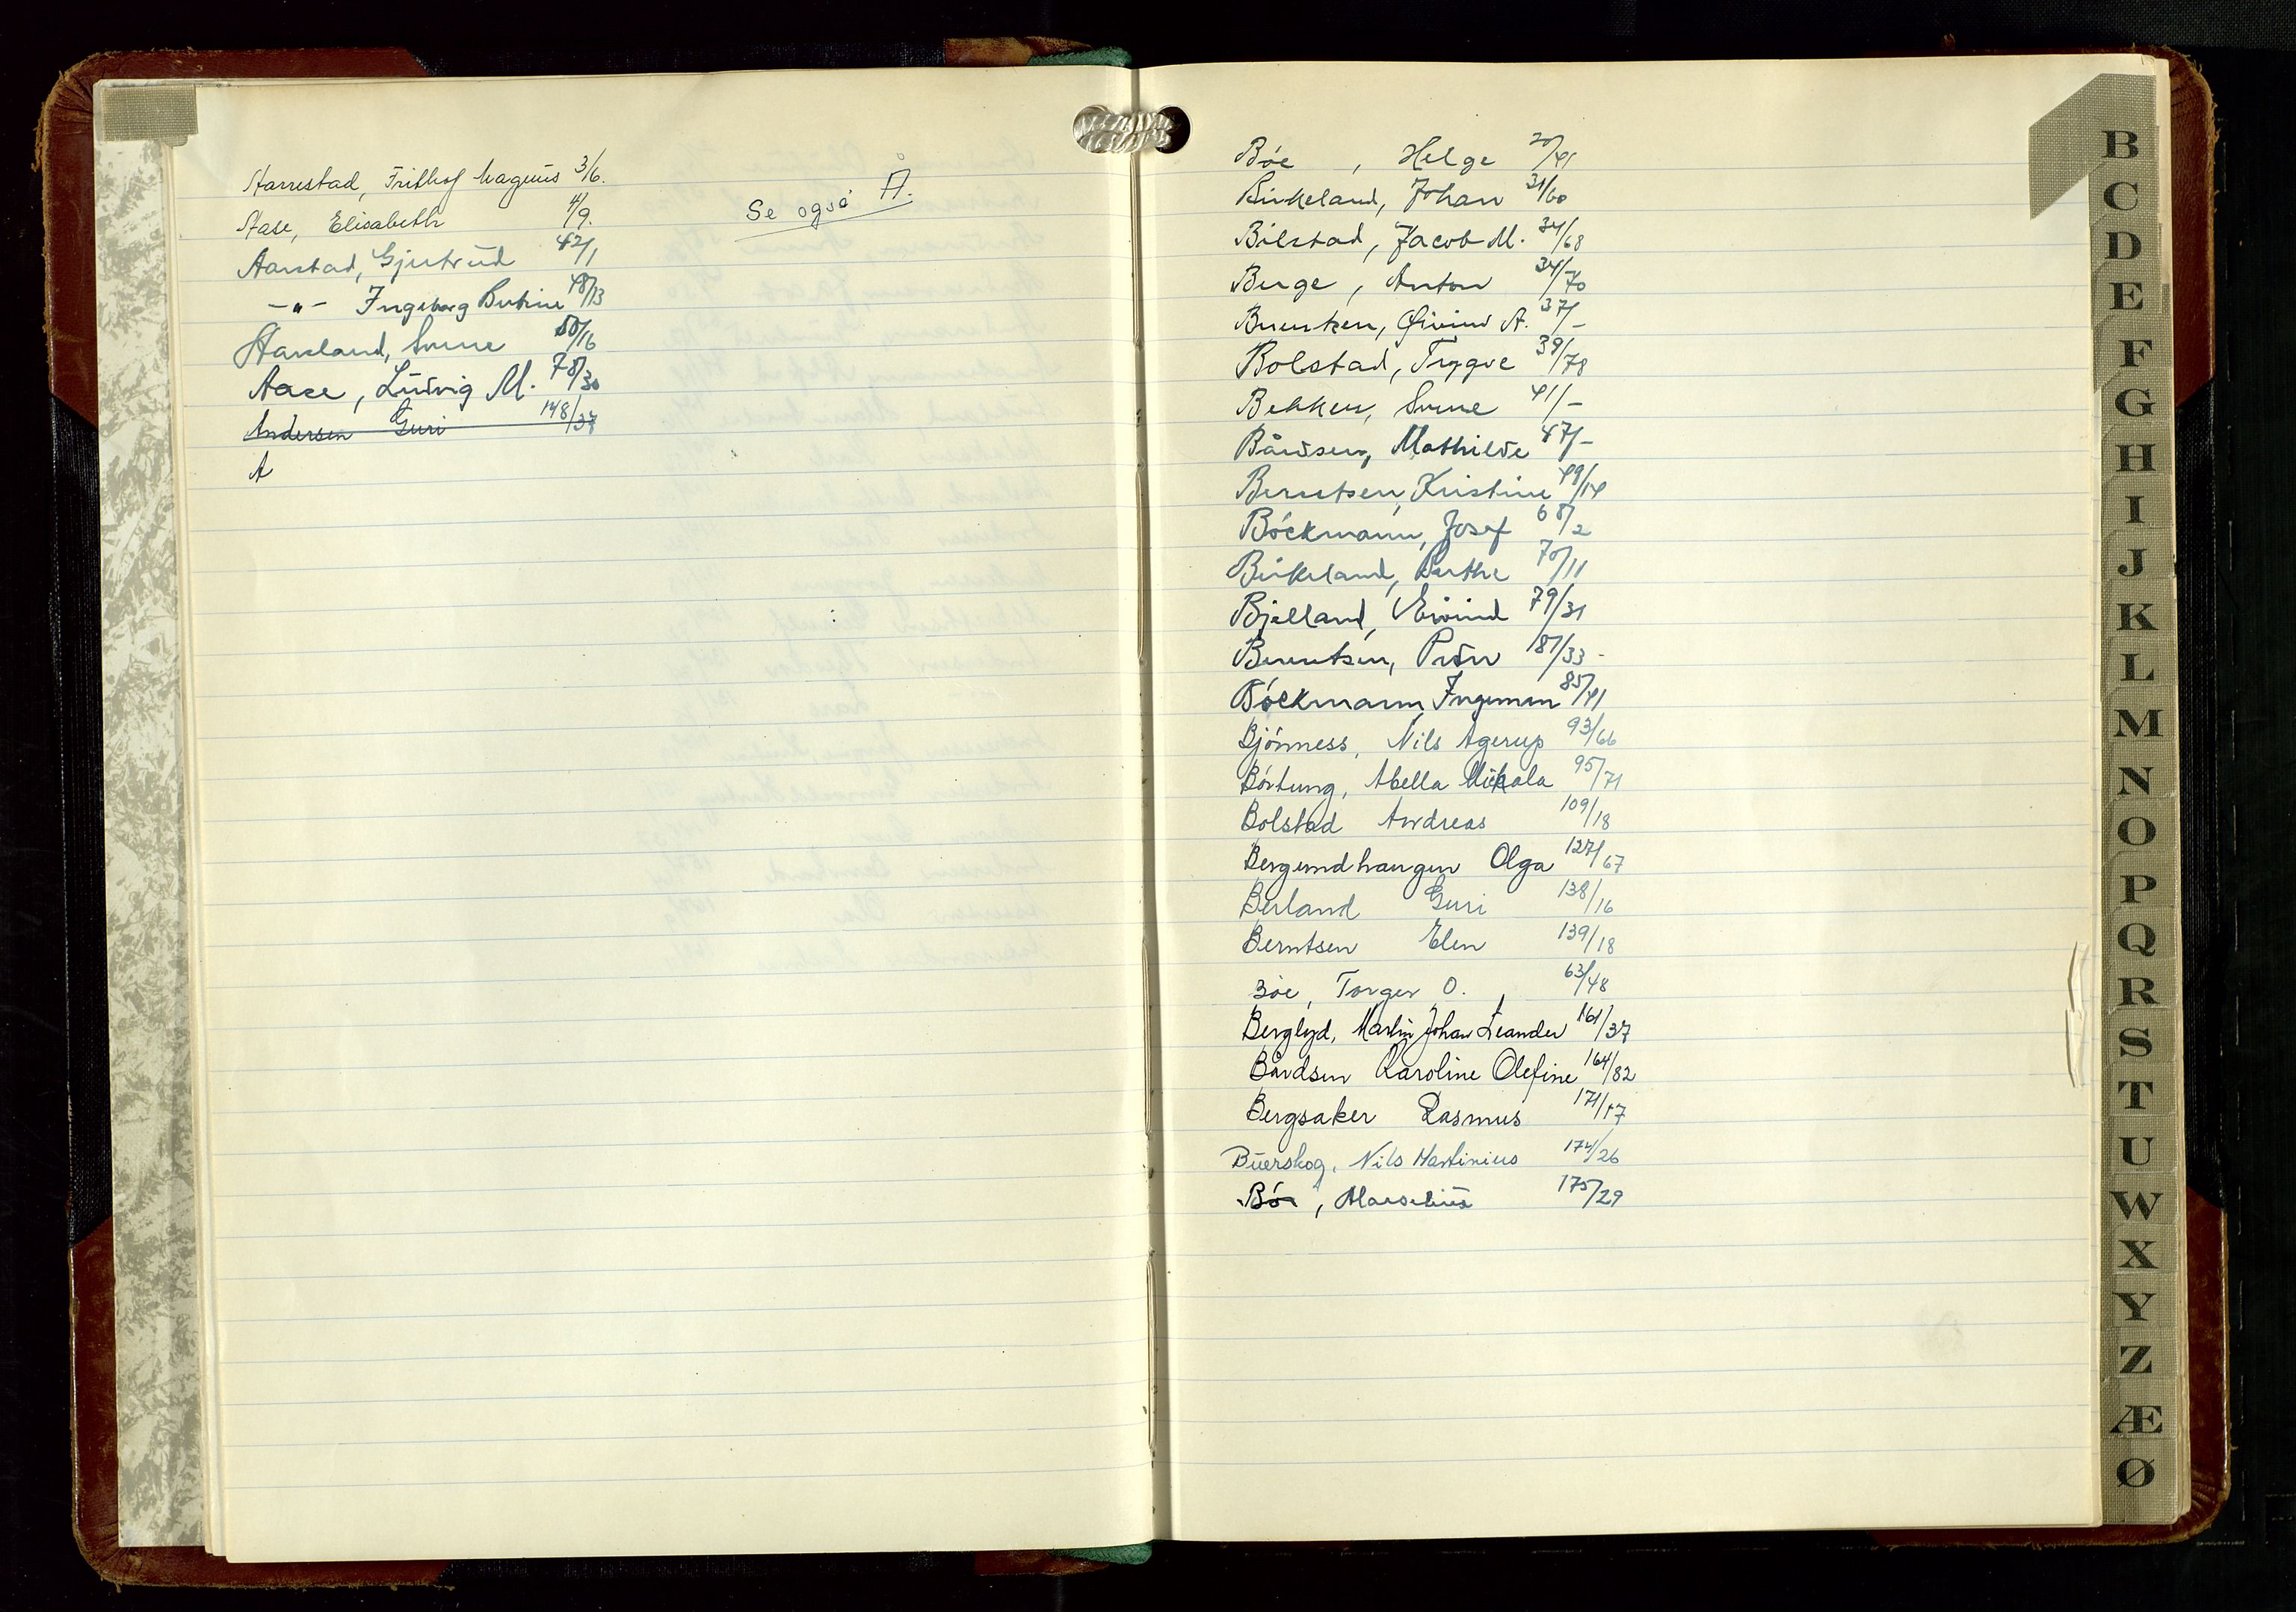 Aarrestad, Frithof Magnus 3/6.
Aase, Elisabeth 4/9.
Aarstad, Gjertrud 42/1
-"- Ingeborg Bertine 48/13
Aarsland, Sverre 50/16
Aase, Ludvig M. 78/30
Andersen Guri 148/37
A
Se også Å.
Bøe , Helge 20/41
Birkeland, Johan 31/60
Bilstad, Jacob M. 34/68
Berge, Anton 34/70
Berentsen, Øivind A. 37/-
Bolstad, Trygve 39/78
Bekken, Sverre 41/-
Bårdsen, Mathilde 47/-
Berntsen, Kristine 49/14
Böckmann, Josef 68/2
Birkeland, Berthe 70/11
Bjelland, Eivind 79/31
Berentsen, Peder 181/33
Böckmann, Ingeman 85/41
Bjönness, Nils Agerup 93/66
Börtung, Abella Mikala 95/71
Bolstad Andreas 109/18
Bergundhaugen Olga 127/67
Berland Guri 138/16
Berntsen Elen 139/18
Bøe, Torger O. 63/48
Berglyd, Martin Johan Leander 161/37
Bårdsen Karoline Olefine 164/82
Bergsaker Rasmus 171/17
Buerskog, Nils Martinius 174/26
Bø, Marselius 175/29
B
C
D
E
F
G
H
I
J
K
L
M
N
O
P
Q
R
S
T
U
W
X
Y
Z
Æ
Ø